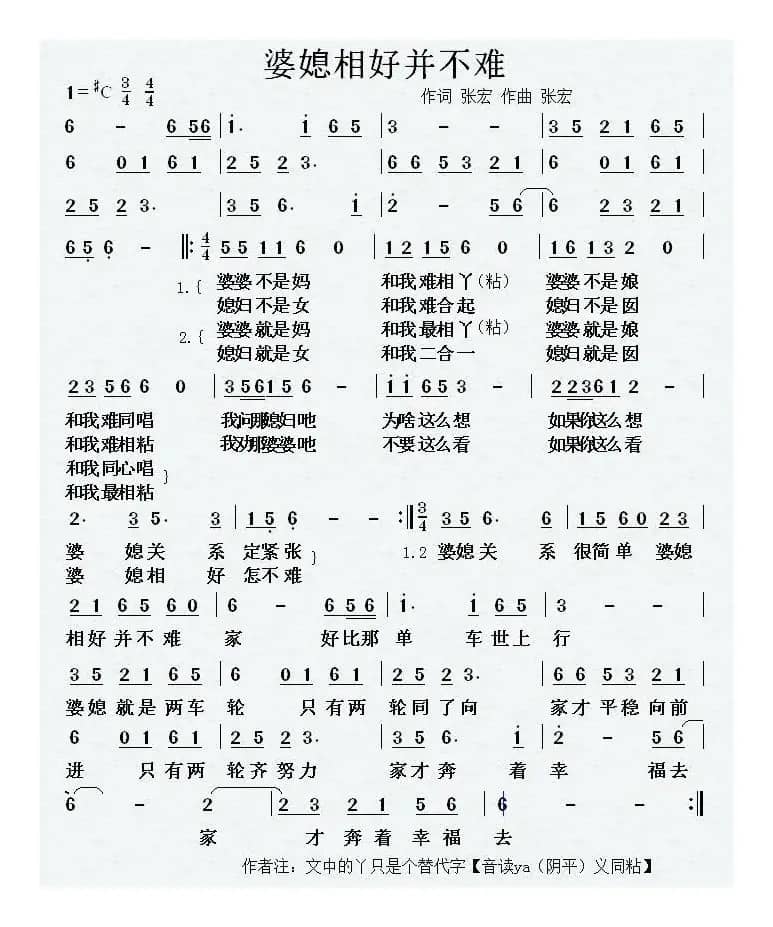 婆媳相好并不难
1=#C 3/4 4/4
作词 张宏 作曲 张宏
6 - 6 56 | i· i 6 5 | 3 - - | 3 5 2 1 6 5 |
6 0 1 6 1 | 2 5 2 3· | 6 6 5 3 2 1 | 6 0 1 6 1 |
2 5 2 3· | 3 5 6· i | 2 - 5 6 | 6 2 3 2 1 |
6 5 6 - ‖: 4/4 5 5 1 1 6 0 | 1 2 1 5 6 0 | 1 6 1 3 2 0 |
1.{ 婆婆不是妈 和我难相丫(粘) 婆婆不是娘
媳妇不是女 和我难合起 媳妇不是囡
2.{ 婆婆就是妈 和我最相丫(粘) 婆婆就是娘
媳妇就是女 和我二合一 媳妇就是囡
2 3 5 6 6 0 | 3 5 6 1 5 6 - | i i 6 5 3 - | 2 2 3 6 1 2 - |
和我难同唱 我问那媳妇吔 为啥这么想 如果你这么想
和我难相粘 我劝那婆婆吔 不要这么看 如果你这么看
和我同心唱 }
和我最相粘
2· 3 5· 3 | 1 5 6 - - :‖ 3/4 3 5 6· 6 | 1 5 6 0 2 3 |
婆 媳关 系 定紧张 } 1.2 婆媳关 系 很简单 婆媳
婆 媳相 好 怎不难
2 1 6 5 6 0 | 6 - 6 5 6 | i· i 6 5 | 3 - - |
相好并不难 家 好比那 单 车世上 行
3 5 2 1 6 5 | 6 0 1 6 1 | 2 5 2 3· | 6 6 5 3 2 1 |
婆媳就是两车 轮 只有两 轮同了向 家才平稳向前
6 0 1 6 1 | 2 5 2 3· | 3 5 6· i | 2 - 5 6 |
进 只有两 轮齐努力 家才奔 着 幸 福去
6 - 2 | 2 3 2 1 5 6 | 6 - - :‖
家 才奔着幸福 去
作者注：文中的丫只是个替代字【音读ya（阴平）义同粘】